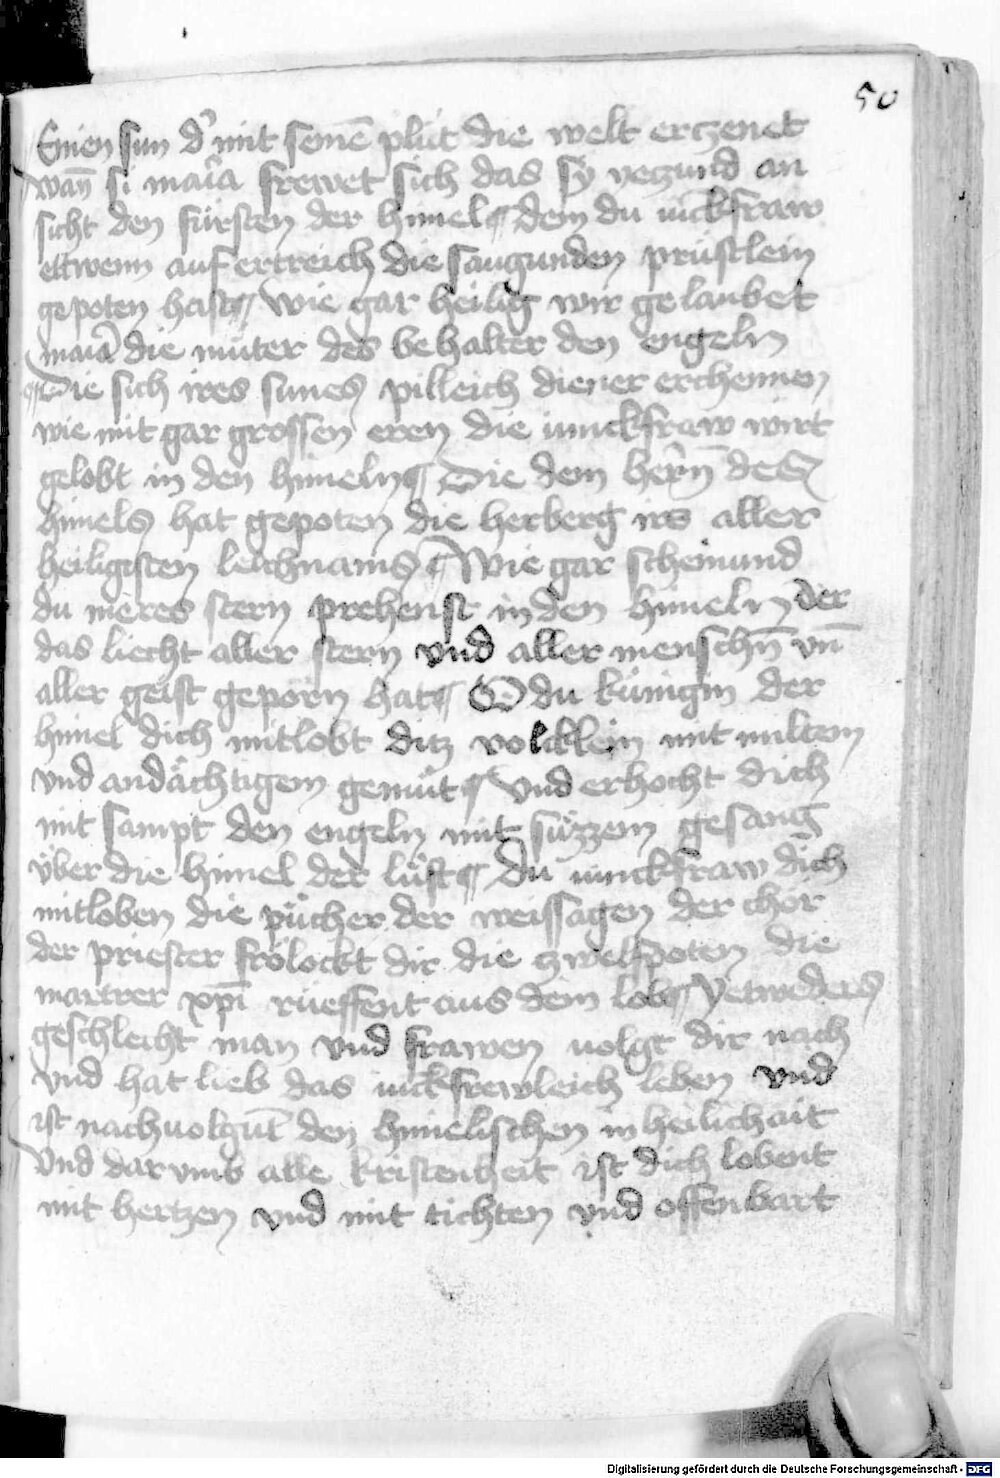 50
Einen sun d' mit seinē plüt die welt erczenet
wan̄ si maīa frewet sich das sy yeczund an
sicht den fürsten der himel ¶ dem du iūckfraw
ettwenn auf ertreich die saugunden prüstlein
gepoten hast ¶ Wie gar heilig wir gelaubet
maiā die müter des behalter den engeln
¶ Die sich ires sunes pilleich diener erchennen
wie mit gar grossen eren die iunckfraw wirt
gelobt in den himeln ¶ Die dem herñ des
himels hat gepoten die herberg irs aller
heiligisten leichnams ¶ Wie gar scheinund
du meres stern prehenst in den himeln der
das liecht aller stern vnd aller menschn̄ vn̄
aller geist geporn hat ¶ O du künigin der
himel dich mitlobt ditz volcklein mit miltem
vnd andächtigem gemüt ¶ Vnd erhocht dich
mit sampt den engeln mit süzzem gesang
über die himel der lüft ¶ Du iunckfraw dich
mitloben die pücher der weissagen der chor
der priester frolockt dir die zwelfpoten die
martrer xp̄i rüeffent aus dem lob ¶ Yetweders
geschlecht man vnd frawen uolgt dir nach
vnd hat lieb das iūckfrewleich leben vnd
ist nachuolgūt den himelischen in heilichait
Vnd dar vmb alle kristenheit ist dich lobent
mit hertzen vnd mit tichten vnd offenbart
Digitalisierung gefördert durch die Deutsche Forschungsgemeinschaft - DFG